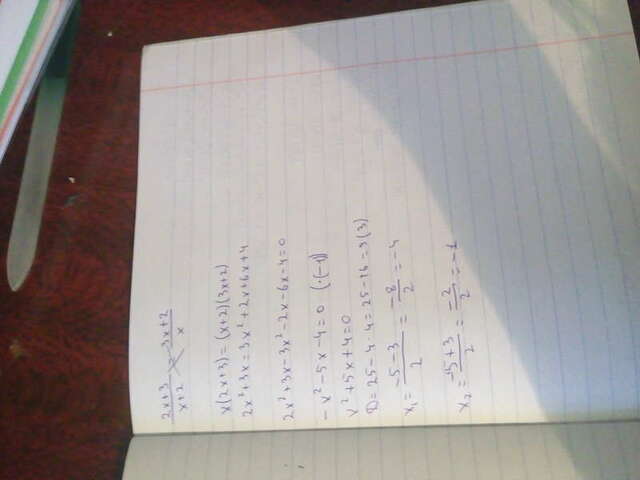 (2x+3)/(x+2) = (3x+2)/x
x(2x+3) = (x+2)(3x+2)
2x²+3x = 3x²+2x+6x+4
2x²+3x-3x²-2x-6x-4=0
-x²-5x-4=0 (·(-1))
x²+5x+4=0
D=25-4·4=25-16=9(3)
x₁=(-5-3)/2=(-8)/2=-4
x₂=(-5+3)/2=(-2)/2=-1